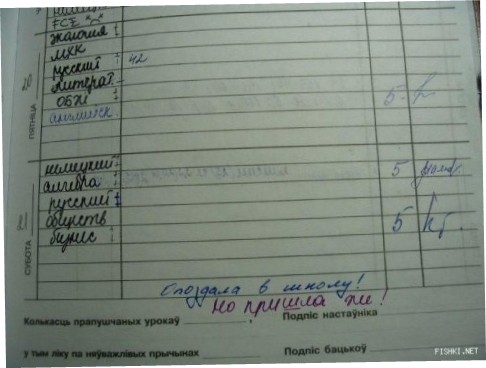 немецкий
FCE
экология
МХК
русский 42
литерат.
ОБЖ 5
английск.
ПЯТНІЦА
немецкий 5
алгебра
русский
обществ 5
бизнес
СУБОТА
Опоздала в школу!
Но пришла же!
Колькасць прапушчаных урокаў
Подпіс настаўніка
у тым ліку па няўважлівых прычынах
Подпіс бацькоў
FISHKI.NET